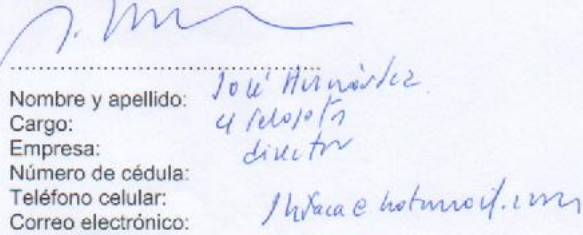 Nombre y apellido: José Hernández
Cargo:
Empresa: director
Número de cédula:
Teléfono celular:
Correo electrónico: